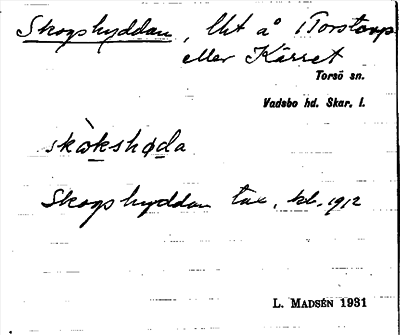 Skogshyddan, lht å 1 Torstorp
eller Kärret
Torsö sn.
Vadsbo hd. Skar. l.
skòkshøda
Skogshyddan tax. bb. 1912
L. Madsén 1931